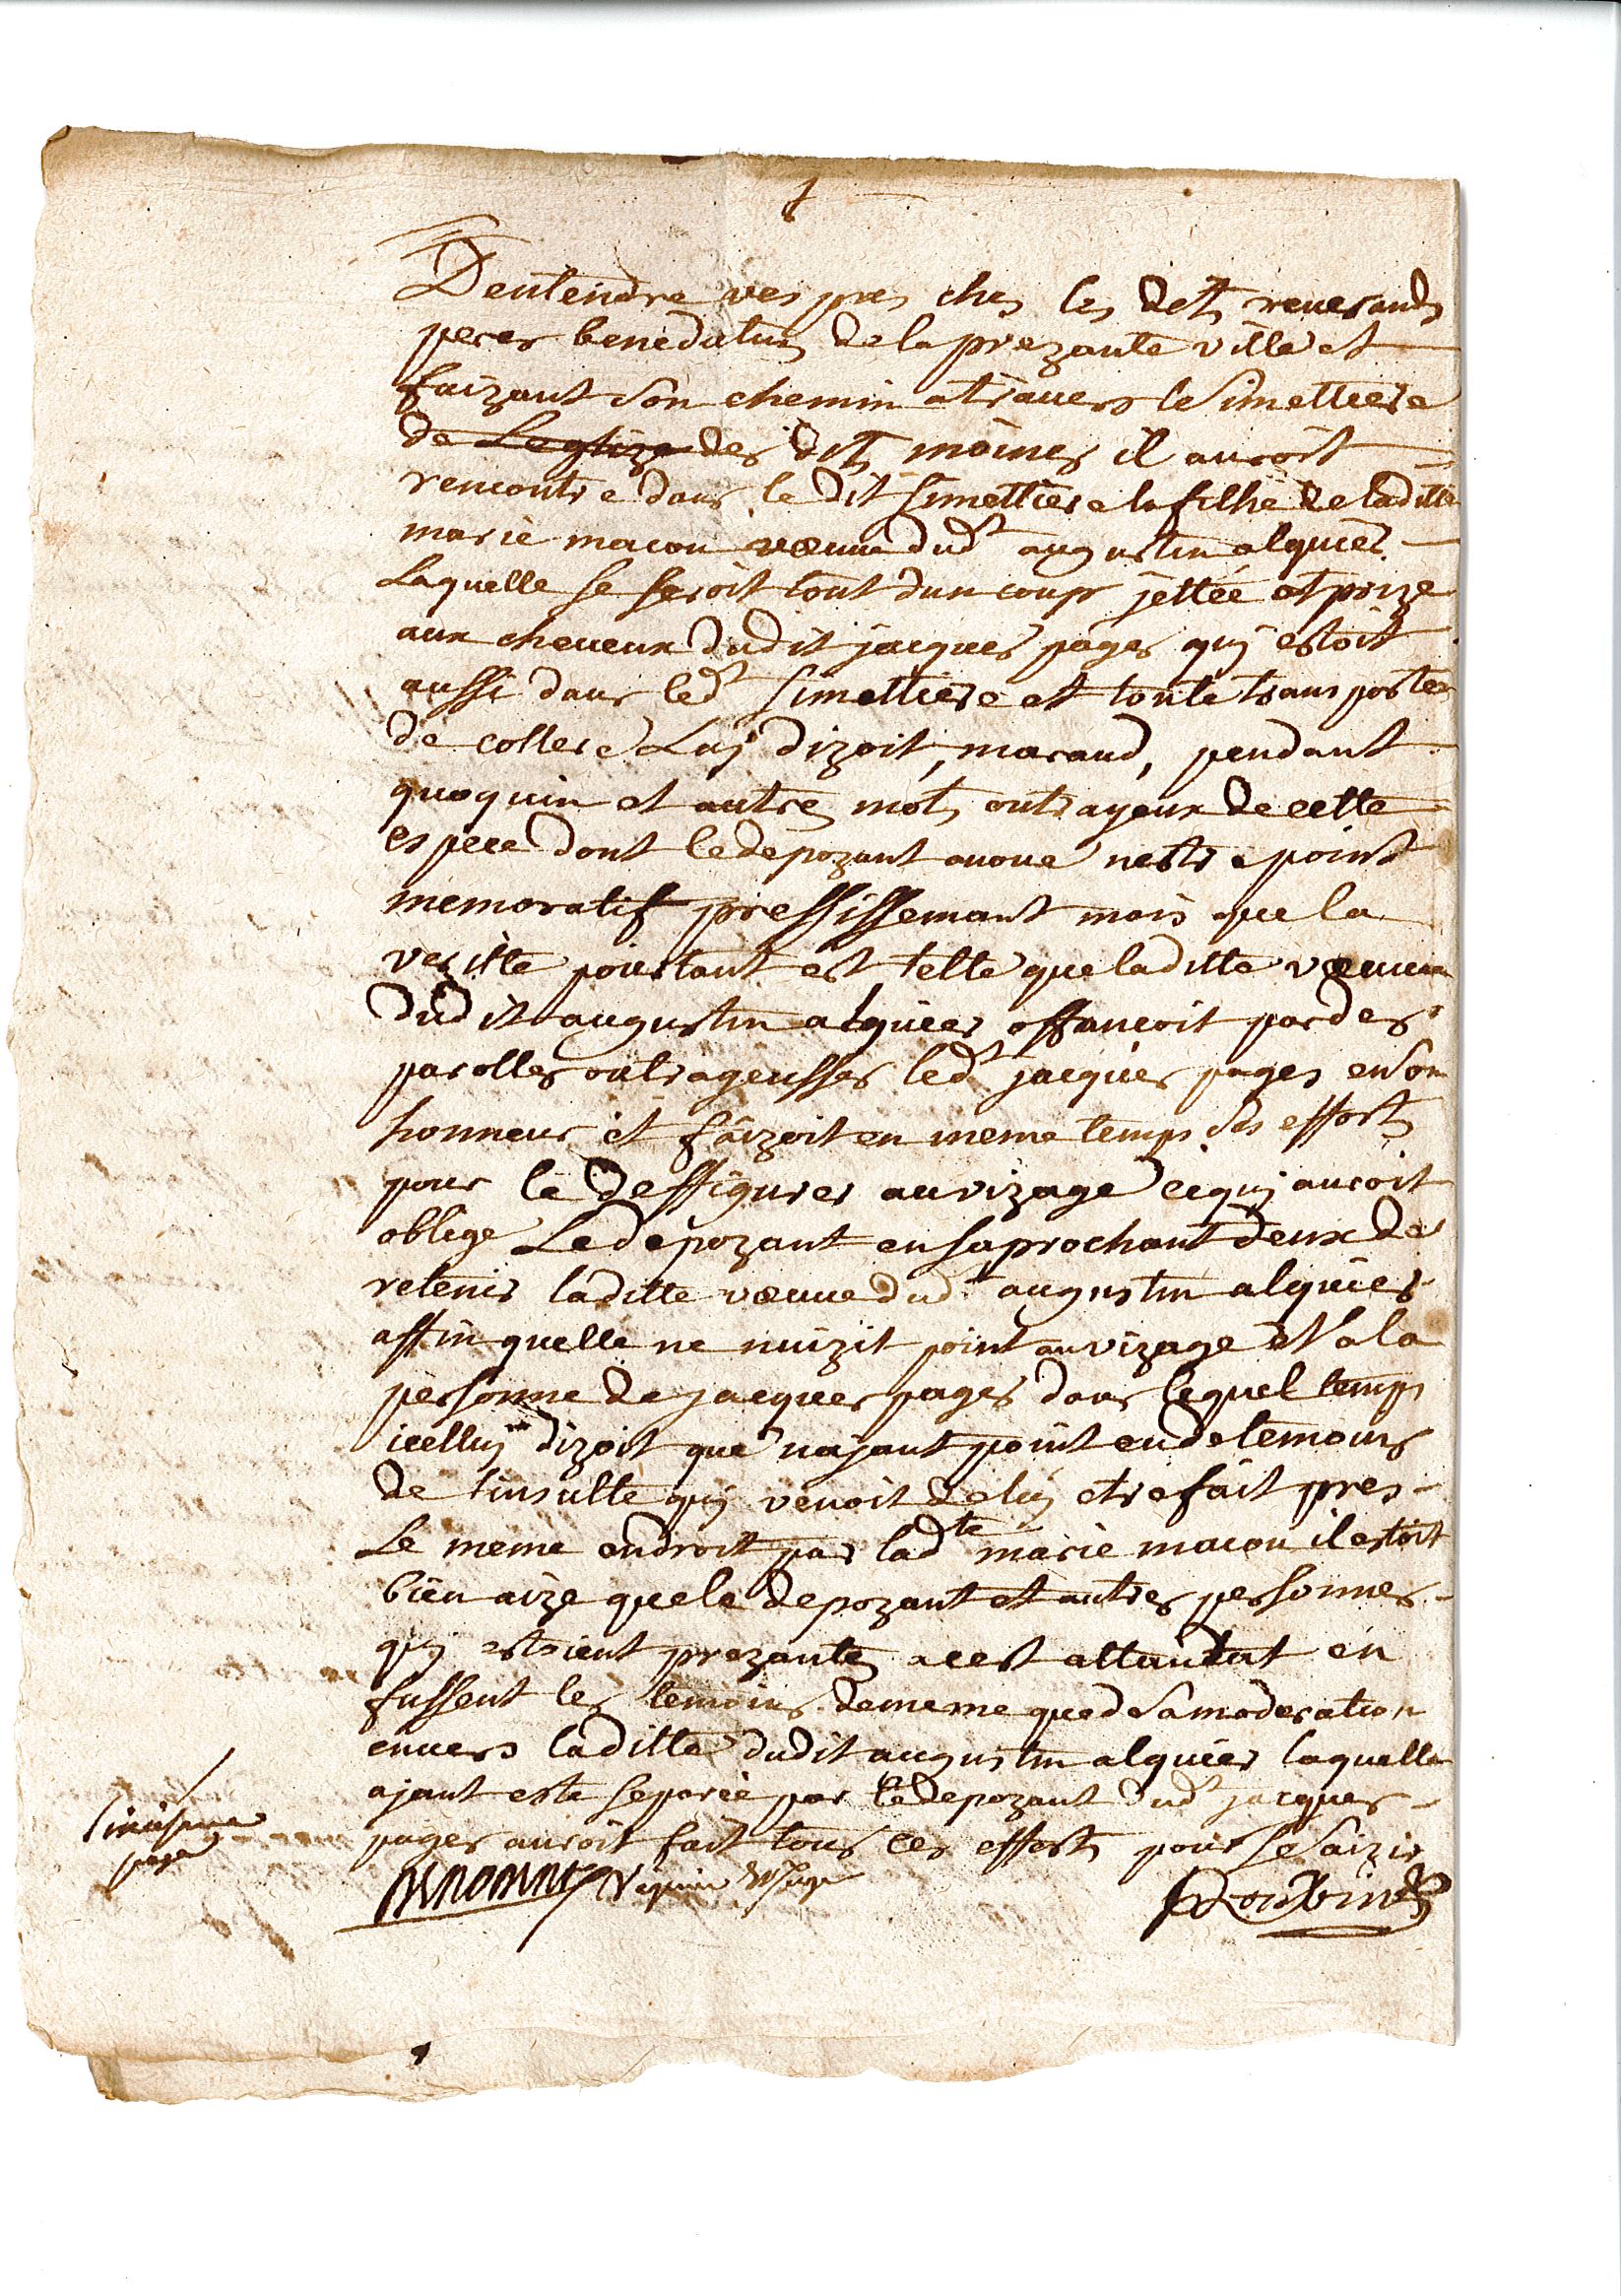 Dentendre vespres ches les dits reverands
peres benedictins de la prezante ville et
faizant son chemin atravers le simettiere
de Leglize des dits moines il auroit
rencontre dans le dit simettiere la filhe de laditte
marie macon veeuve dud augustin alquier
Laquelle se seroit tout dun coup jettée et prize
aux cheveux dudit jacques pages quy estoit
aussi dans led simettiere et toute transportee
de collere Luy dizoit, maraud, pendant
quoquin et autres mots outrageux de cette
espece dont le depozant avoue nestre point
memoratif pressissemant mais que la
veritte pourtant est telle que laditte veeuve
dudit augustin alquier offancoit par des
parolles outrageusses led jacques pages en son
honneur et faizoit en meme temps ses efforts
pour le deffigurer au vizage ce quy auroit
oblige Le depozant en saprochant deux de
retenir laditte veeuve dud augustin alquier
affin quelle ne nuizit point au vizage et a la
personne de jacques pages dans lequel temps
icelluy dizoit que nayant point eu de temoins
de linsulte quy venoit de luy etre fait pres
Le meme endroit par ladte marie macon il estoit
bien aize que le depozant et autres personnes
quy estoient prezantes a cest attantat en
fussent les temoins de meme que de sa moderation
envers laditte dudit augustin alquier laquelle
ajant este separée par le depozant dud jacques
pages auroit fait tous ces efforts pour se saizir
page